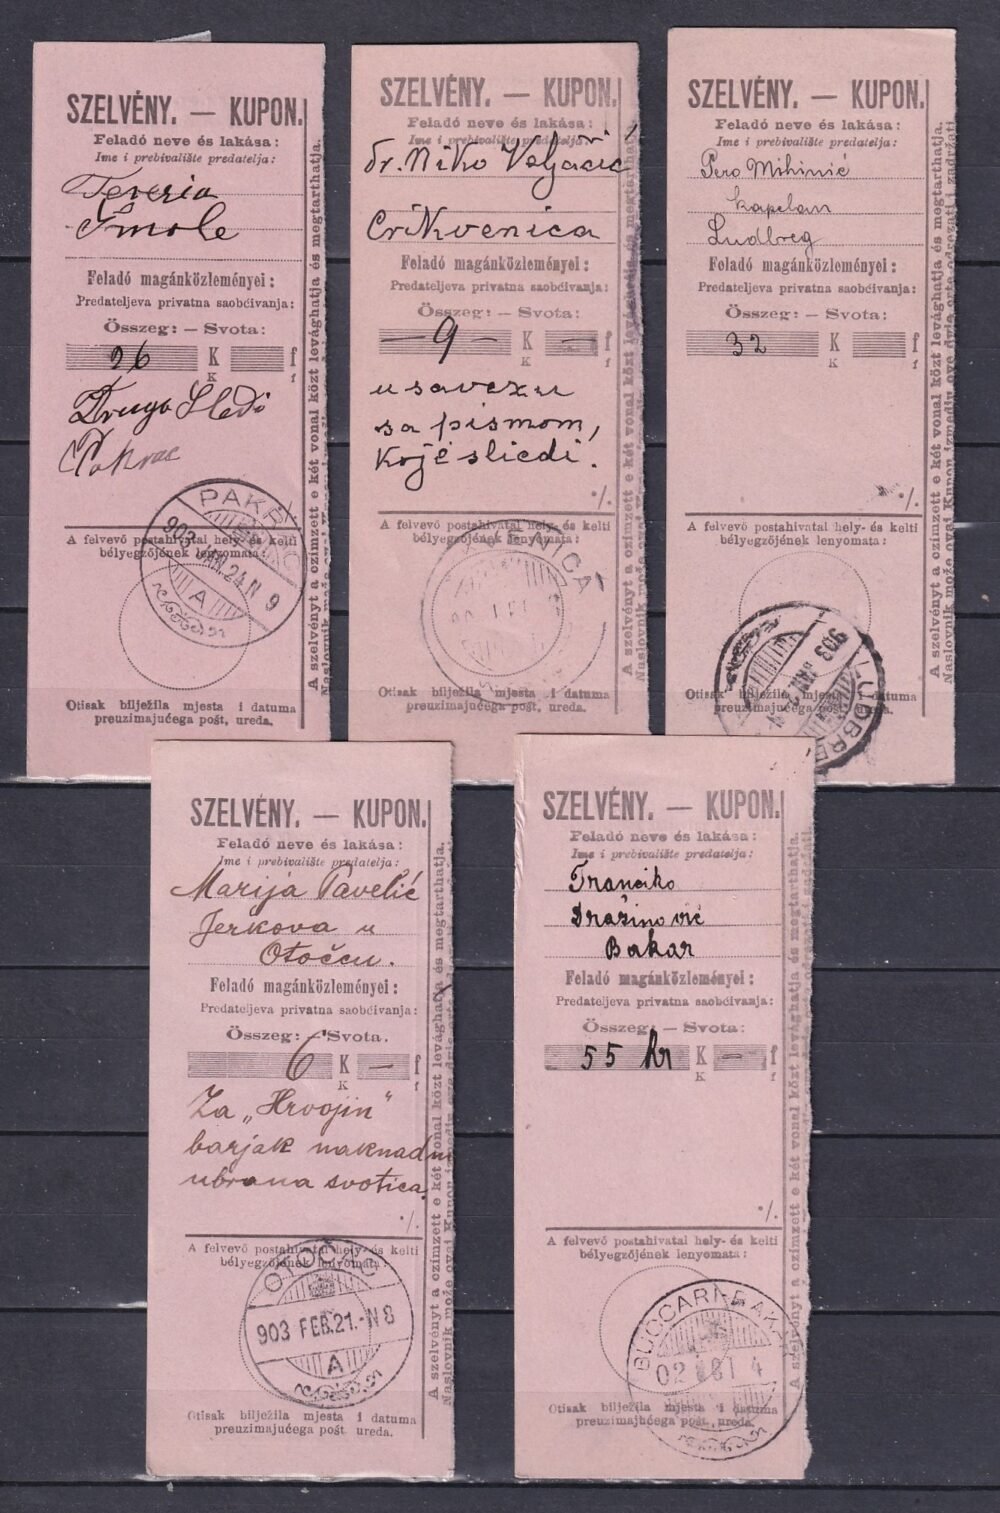 SZELVÉNY. — KUPON.
Feladó neve és lakása:
Ime i prebivalište predatelja:
Terezia
Šmole
Feladó magánközleményei:
Predateljeva privatna saobćivanja:
Összeg: – Svota:
26 K f
K f
Druga
Pakrac
PAKRAC
903 JAN. 24. N 9
A
A felvevő postahivatal hely- és kelti
bélyegzőjének lenyomata:
Otisak bilježila mjesta i datuma
preuzimajućega pošt. ureda.
A szelvényt a czimzett e két vonal közt levághatja és megtarthatja.
SZELVÉNY. — KUPON.
Feladó neve és lakása:
Ime i prebivalište predatelja:
Dr. Niko Veljačić
Crikvenica
Feladó magánközleményei:
Predateljeva privatna saobćivanja:
Összeg: – Svota:
— 9 — K — f
K f
u savezu
sa pismom,
koje sliedi.
·/.
A felvevő postahivatal hely- és kelti
bélyegzőjének lenyomata:
Otisak bilježila mjesta i datuma
preuzimajućega pošt. ureda.
A szelvényt a czimzett e két vonal közt levághatja és megtarthatja.
SZELVÉNY. — KUPON.
Feladó neve és lakása:
Ime i prebivalište predatelja:
Pero Mihinić
kapelan
Ludbreg
Feladó magánközleményei:
Predateljeva privatna saobćivanja:
Összeg: – Svota:
32 K f
K f
·/.
A felvevő postahivatal hely- és kelti
bélyegzőjének lenyomata:
903 JAN.
LUDBRE
Otisak bilježila mjesta i datuma
preuzimajućega pošt. ureda.
A szelvényt a czimzett e két vonal közt levághatja és megtarthatja.
Naslovnik može ovaj Kupon izmedju ove dvie crte odrezati i zadržati.
SZELVÉNY. — KUPON.
Feladó neve és lakása:
Ime i prebivalište predatelja:
Marija Pavelić
Jerkova u
Otočcu.
Feladó magánközleményei:
Predateljeva privatna saobćivanja:
Összeg: – Svota.
6 K — f
K f
Za „Hrvojin“
barjak naknadno
ubrana svotica.
·/.
A felvevő postahivatal hely- és kelti
bélyegzőjének lenyomata:
OTOČAC
903 FEB. 21. N 8
A
Otisak bilježila mjesta i datuma
preuzimajućega pošt. ureda.
A szelvényt a czimzett e két vonal közt levághatja és megtarthatja.
SZELVÉNY. — KUPON.
Feladó neve és lakása:
Ime i prebivalište predatelja:
Franciko
Dražinović
Bakar
Feladó magánközleményei:
Predateljeva privatna saobćivanja:
Összeg: – Svota:
55 kr K — f
K f
·/.
A felvevő postahivatal hely- és kelti
bélyegzőjének lenyomata:
BUCCARI-BAKAR
Otisak bilježila mjesta i datuma
preuzimajućega pošt. ureda.
A szelvényt a czimzett e két vonal közt levághatja és megtarthatja.